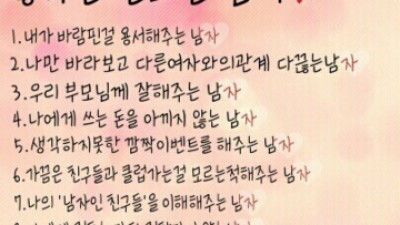 1.내가 바람핀걸 용서해주는 남자
2.나만 바라보고 다른여자와의관계 다끊는남자
3.우리 부모님께 잘해주는 남자
4.나에게 쓰는 돈을 아끼지 않는 남자
5.생각하지못한 깜짝이벤트를 해주는 남자
6.가끔은 친구들과 클럽가는걸 모르는척해주는 남자
7.나의 '남자인 친구들'을 이해해주는 남자